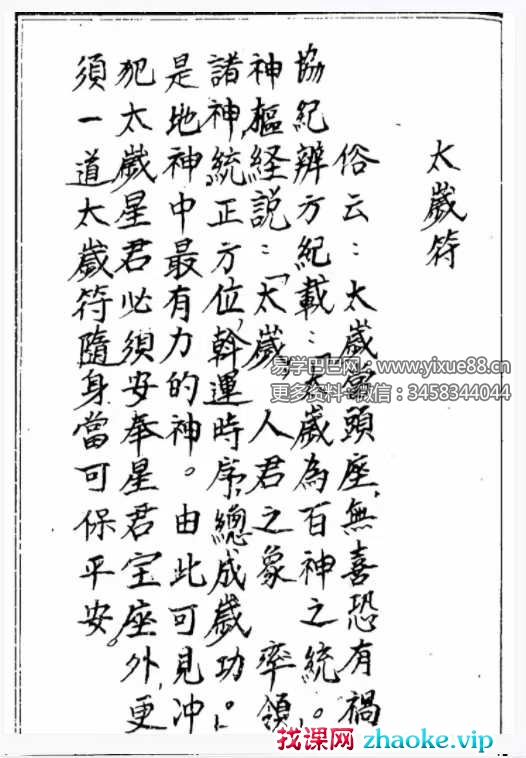 太歲符
俗云：太歲當頭座，無喜恐有禍
協紀辨方紀載：「太歲為百神之統。」
神樞経説：「太歲，人君之象 率領
諸神，統正方位，斡運時序，總成歲功。」
是地神中最有力的神。由此可見冲
犯太歲星君必須安奉星君宝座外，更
須一道太歲符隨身當可保平安。
易学巴巴网：www.yixue88.cn
更多资料+微信：3458344044
找课网 zhaoke.vip